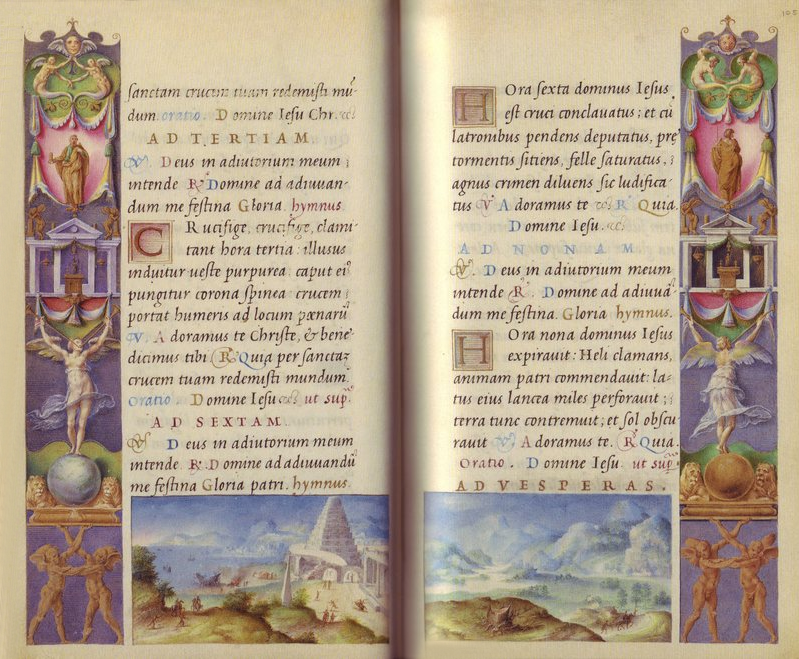 sanctam crucem tuam redemisti mū-
dum. oratio. Domine Iesu Chr. &c̃
AD TERTIAM
V. Deus in adiutorium meum ;
intende R. Domine ad adiuuan-
dum me festina Gloria. hymnus.
CRucifige, crucifige, clami
tant hora tertia: illusus
induitur ueste purpurea: caput ei⁹
pungitur corona spinea: crucem
portat humeris ad locum pœnarū
V. Adoramus te Christe, & bene
dicimus tibi R. Quia per sanctaʒ
crucem tuam redemisti mundum.
Oratio. Domine Iesu &c̃. ut sup.
AD SEXTAM
V. Deus in adiutorium meum
intende R. Domine ad adiuuandū
me festina Gloria patri. hymnus.
HOra sexta dominus Iesus
est cruci conclauatus; et cū
latronibus pendens deputatus, pre
tormentis sitiens, felle saturatus, ;
agnus crimen diluens sic ludifica
tus V. Adoramus te &c̃ R. Quia.
Domine Iesu. &c̃.
AD NONAM
V. Deus in adiutorium meum
intende R. Domine ad adiuuā-
dum me festina. Gloria hymnus.
HOra nona dominus Iesus
expirauit: Heli clamans,
animam patri commendauit: la-
tus eius lancea miles perforauit ;
terra tunc contremuit; et sol obscu
rauit V. Adoramus te. R. Quia.
Oratio. Domine Iesu. ut sup.
AD VESPERAS.